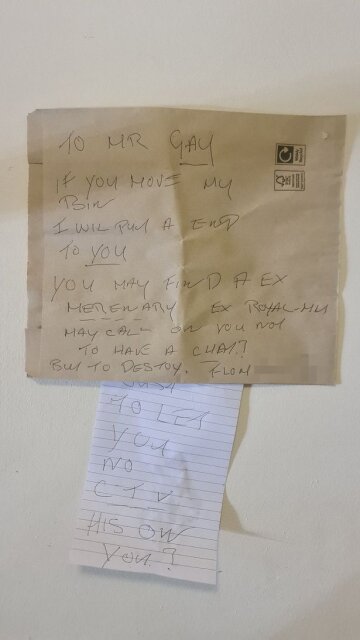 TO MR GAY
IF YOU MOVE MY
BIN
I WILL PUT A END
TO YOU
YOU MAY FIND A EX
MERENARY EX ROYAL
MAY CALL ON YOU NOT
TO HAVE A CHAT?
BUT TO DESTOY. FLOM
JUST
TO LET
YOU
NO
CTV
HIS ON
YOU?